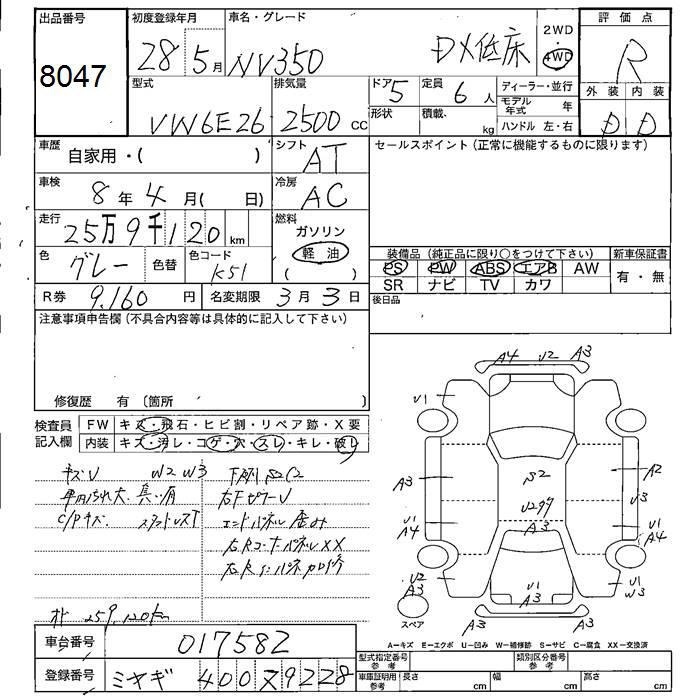 出品番号
8047
初度登録年月
28年5月
車名・グレード
NV350 DX低床
2WD
4WD
評価点
R
外装 内装
D D
型式
VW6E26
排気量
2500cc
ドア 5
形状
定員 6人
積載. kg
ディーラー・並行
モデル年式 年
ハンドル 左・右
車歴
自家用・( )
シフト
AT
セールスポイント(正常に機能するものに限ります)
車検
8年4月( 日)
冷房
AC
走行
25万9千120km
燃料
ガソリン
軽油
( )
色
グレー
色替
色コード
K51
装備品(純正品に限り○をつけて下さい)
新車保証書
PS PW ABS エアB AW
SR ナビ TV カワ
有・無
R券 9,160円
名変期限 3月3日
後日品
注意事項申告欄(不具合内容等は具体的に記入して下さい)
修復歴 有(箇所 )
検査員
記入欄
FW キズ・飛石・ヒビ割・リペア跡・X要
内装 キズ・汚レ・コゲ・穴・スレ・キレ・破レ
キズU W2 W3
C/Pキズ
下廻りS2C2
エンドパネル歪み
右Rコーナーパネル XX
オド 259,120km
A4 U2 A3
U1
A3
U1
A4
U2
A3
S2
U2 97
A3
A2
U3
U1
A4
U1
W3
U1
A3
A3
スペア
A-キズ E-エクボ U-凹み W-補修跡 S-サビ C-腐食 XX-交換済
車台番号
017582
登録番号
ミヤギ 400 ス 9228
型式指定番号
参考
類別区分番号
参考
車庫証明用
参考
長さ cm
幅 cm
高さ cm